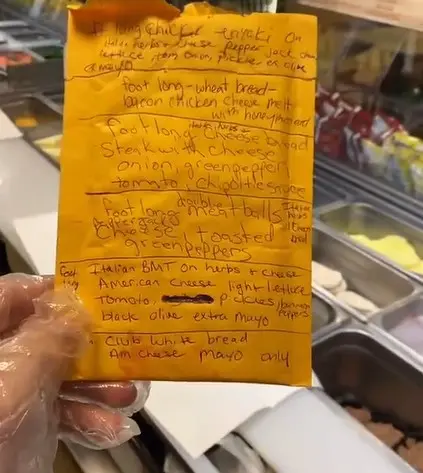 long chicken teriyaki on
italian herbs + cheese pepper jack
lettuce onion, pickles olive
mayo
foot long - wheat bread -
bacon chicken cheese melt
with honey mustard
Italian herbs +
foot long cheese bread
steak with cheese
onion, green pepper
tomato, chipotle sauce
double
foot long meatballs Italian herbs + cheese bread
pepper jack
cheese toasted
green peppers
foot long Italian BMT on herbs + cheese
American cheese light lettuce
tomato pickles / banana peppers
black olive extra mayo
Club white bread
Am cheese mayo only